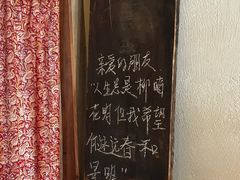 亲爱的朋友
"人生总是柳暗
花明但我希望
你永远春和
景明"